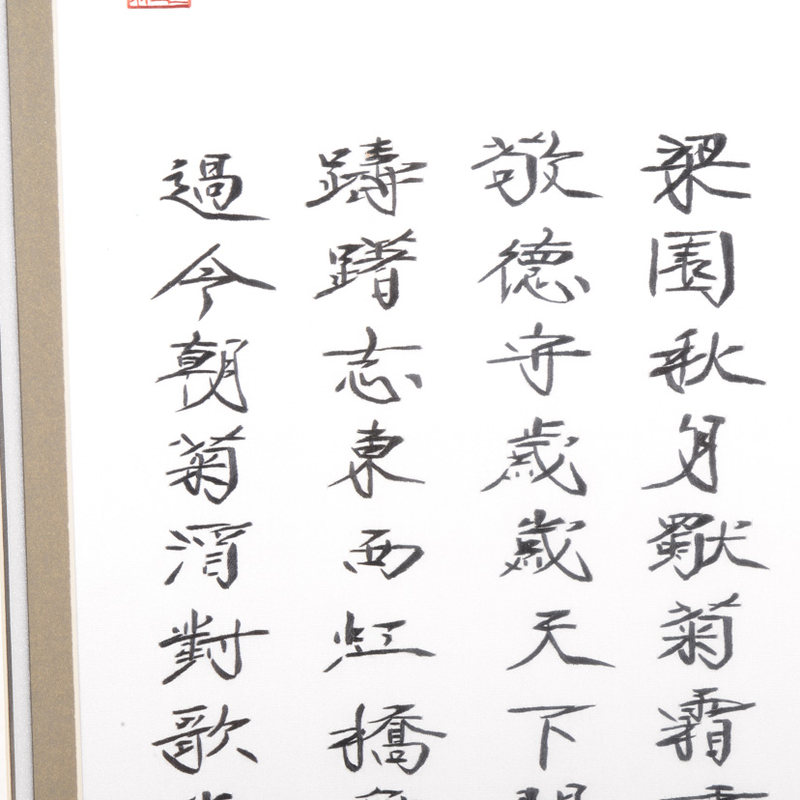 梁園秋月獸菊霜
敬德守歲歲天下
躊躇志東西虹橋
過今朝菊酒對歌